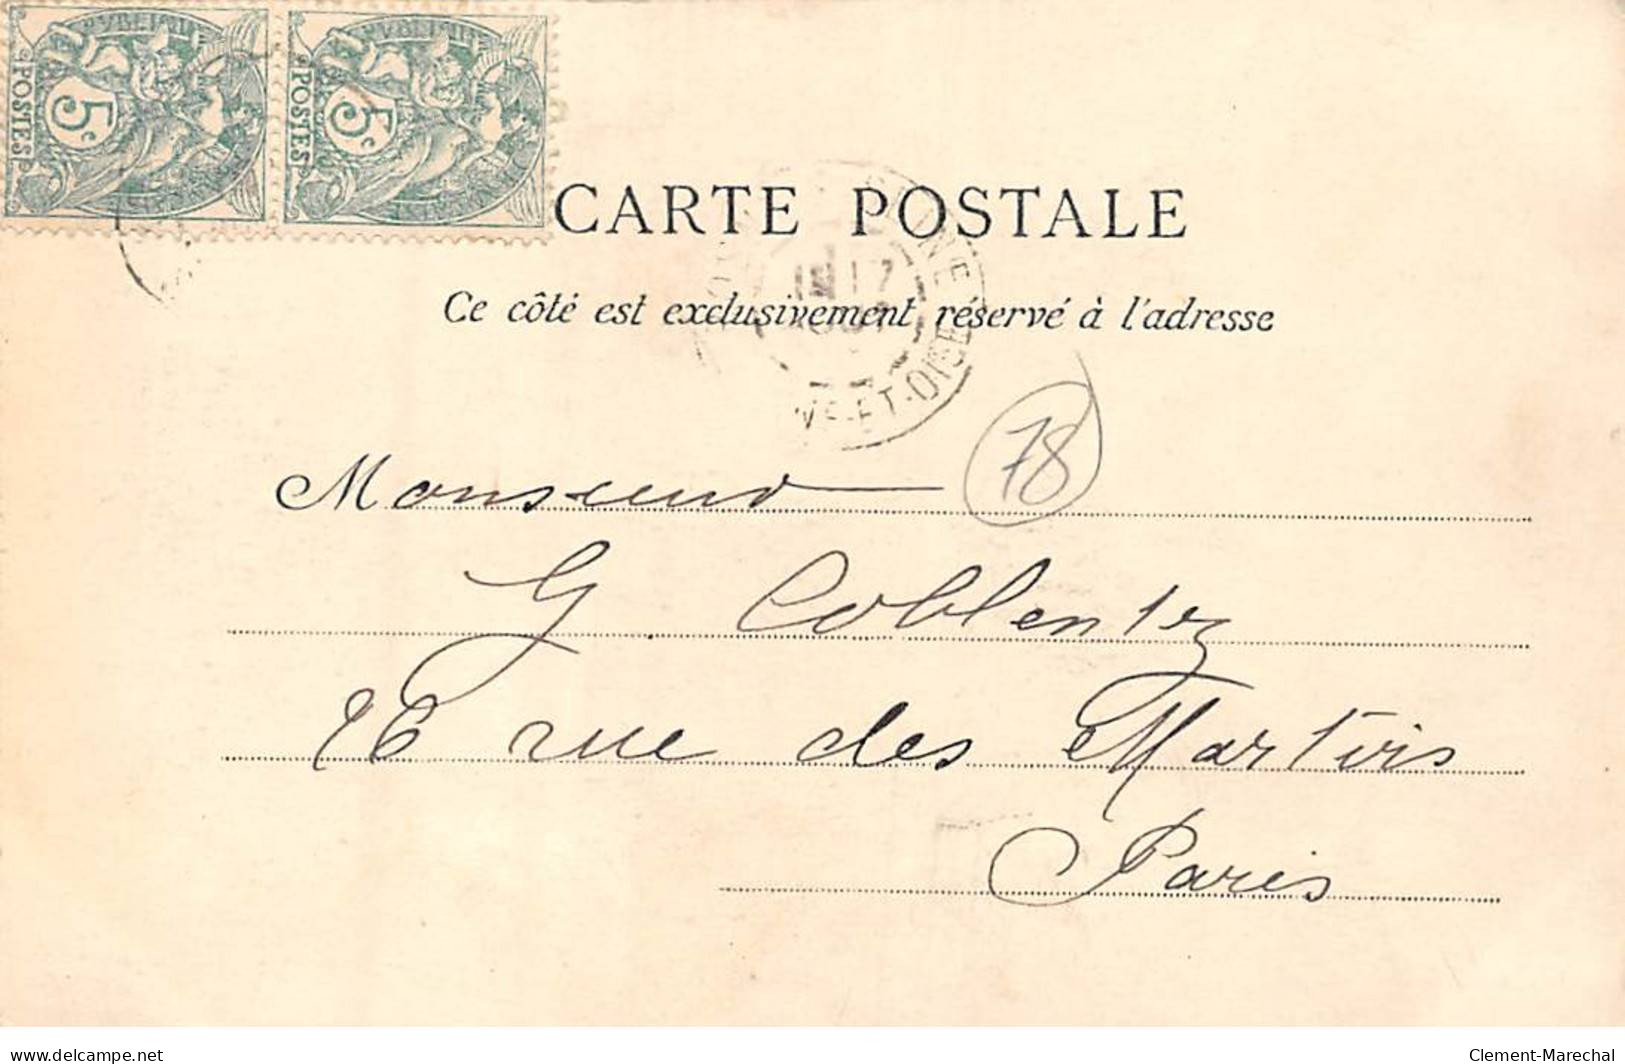 POSTES 5c
POSTES 5c
CARTE POSTALE
Ce côté est exclusivement réservé à l'adresse
ET-OISE
78
Monsieur
G Coblentz
26 rue des Martirs
Paris
delcampe.net
Clement-Marechal